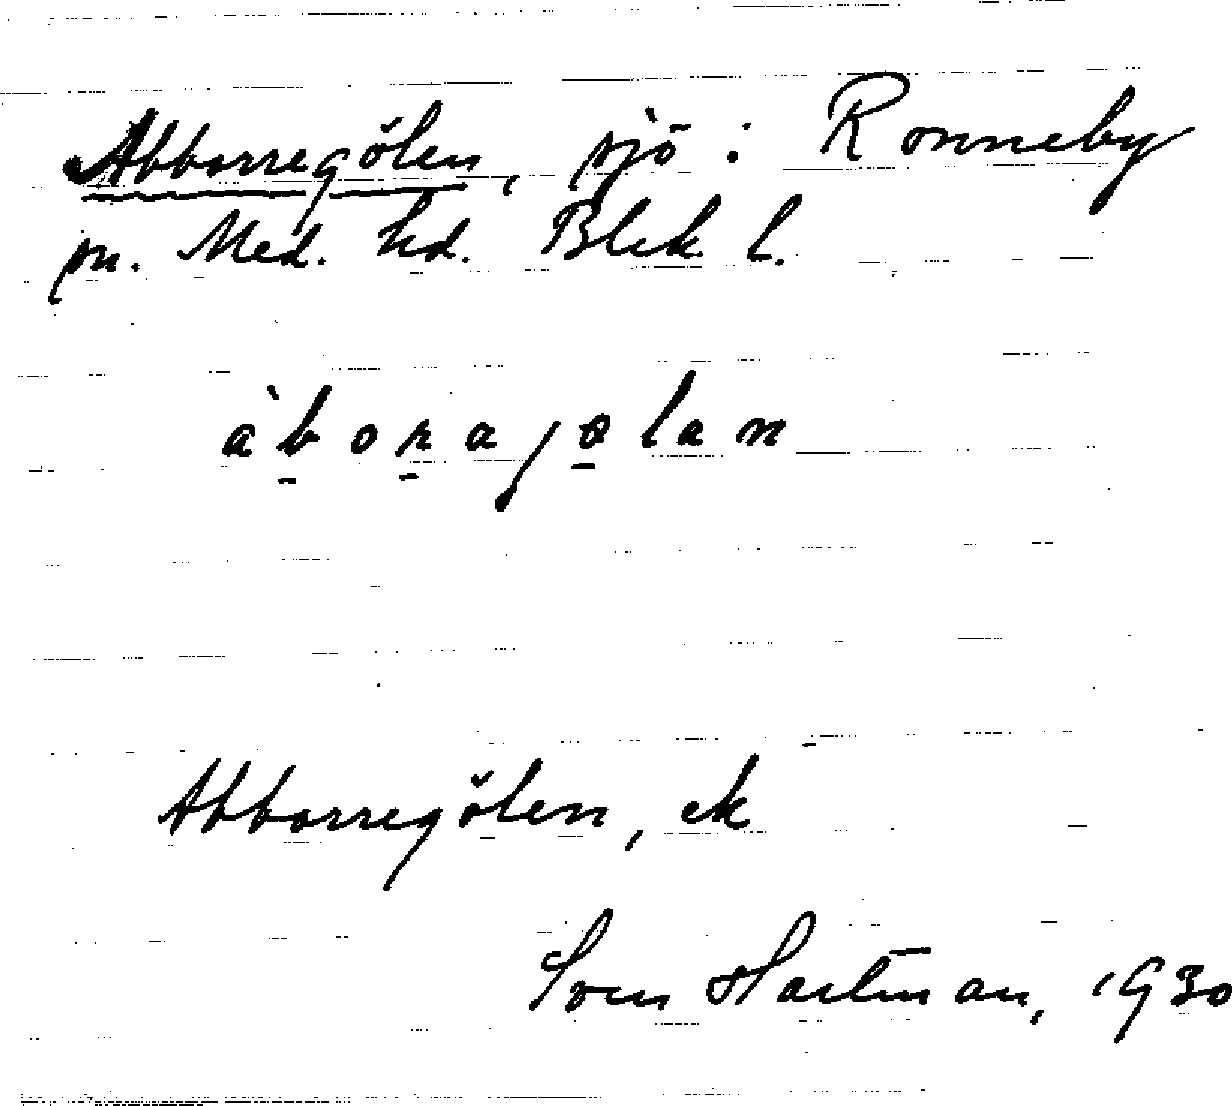 Abborregölen, sjö: Ronneby
sn. Med. hd. Blek. l.
àboragølan
Abborregölen, ek
Sven Hartman, 1930